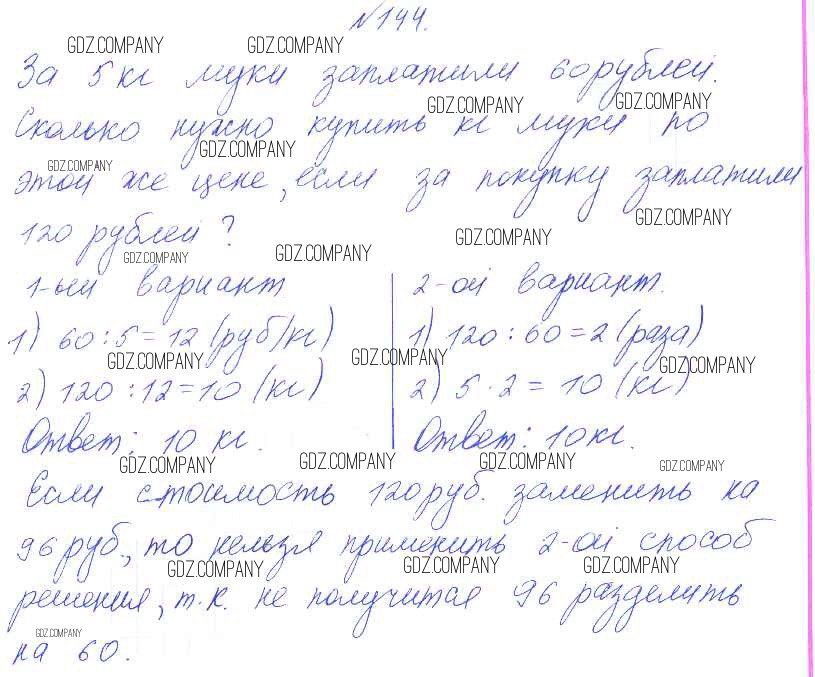 №144.
GDZ.COMPANY GDZ.COMPANY
За 5 кг муки заплатили 60 рублей.
GDZ.COMPANY GDZ.COMPANY
Сколько нужно купить кг муки по
GDZ.COMPANY GDZ.COMPANY
этой же цене, если за покупку заплатили
GDZ.COMPANY
120 рублей?
GDZ.COMPANY GDZ.COMPANY GDZ.COMPANY
1-ый вариант
1) 60 : 5 = 12 (руб/кг)
GDZ.COMPANY
2) 120 : 12 = 10 (кг)
Ответ: 10 кг.
2-ой вариант.
1) 120 : 60 = 2 (раза)
GDZ.COMPANY GDZ.COMPANY
2) 5 · 2 = 10 (кг)
Ответ: 10 кг.
GDZ.COMPANY GDZ.COMPANY GDZ.COMPANY GDZ.COMPANY
Если стоимость 120 руб. заменить на
96 руб., то нельзя применить 2-ой способ
GDZ.COMPANY GDZ.COMPANY GDZ.COMPANY
решения, т.к. не получится 96 разделить
GDZ.COMPANY
на 60.